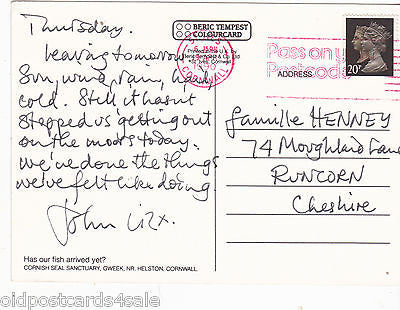 Thursday.
Leaving tomorrow
Sun, wind, rain, hail,
cold. Still it hasn't
stopped us getting out
on the moors today.
We've done the things
we've felt like doing.
John Lizx.
Has our fish arrived yet?
CORNISH SEAL SANCTUARY, GWEEK, NR. HELSTON, CORNWALL.
BERIC TEMPEST
COLOURCARD
Printed in the U.K. by
Beric Tempest & Co. Ltd
St. Ives, Cornwall
CORNWALL
Pass on your
Postcode
20P
ADDRESS
Famille HENNEY
74 Moughland Lane
RUNCORN
Cheshire
oldpostcards4sale